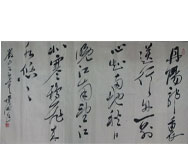 丹陽郭裏
送行舟一別
心知兩地秋日
晚江南望江
北寒鴉飛盡
水悠悠